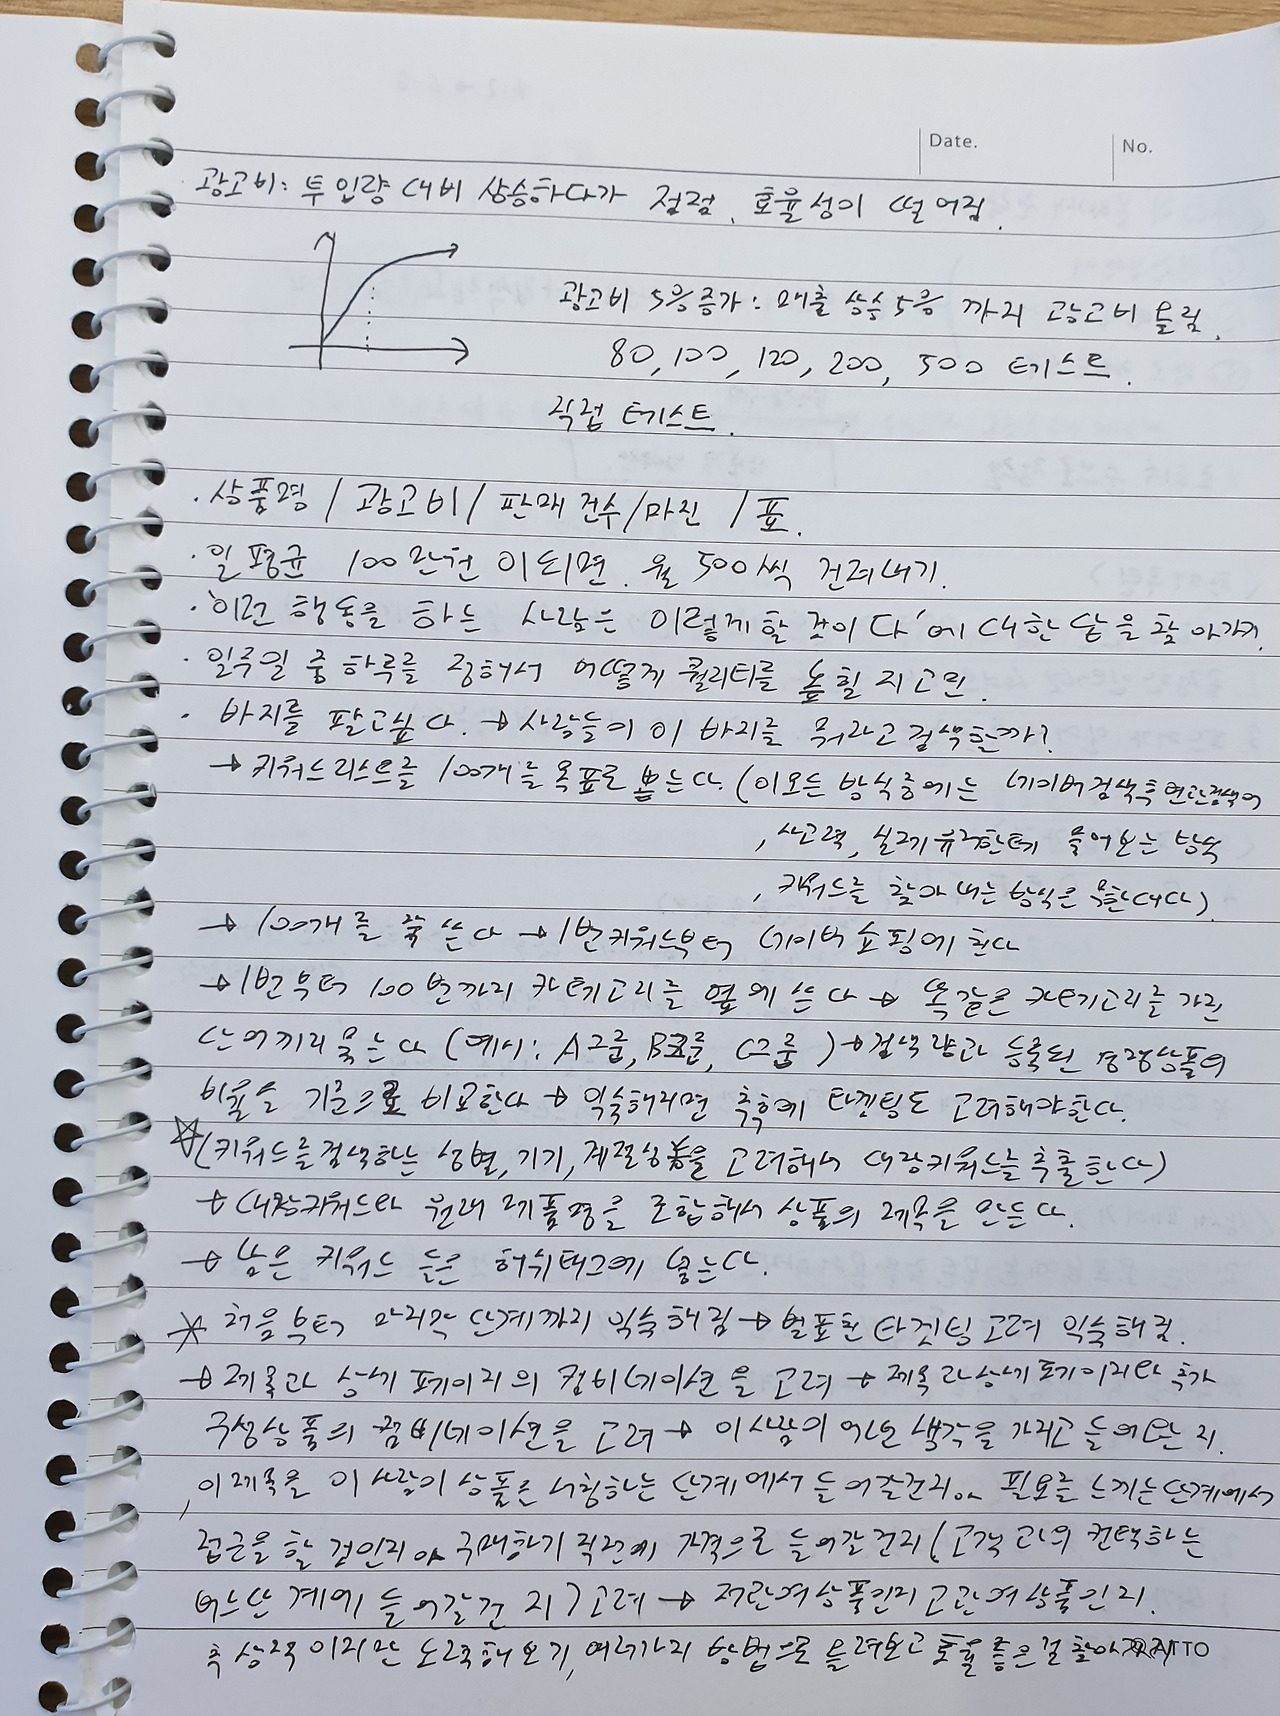 Date.
No.
광고비: 투입량 대비 상승하다가 점점, 효율성이 떨어짐.
광고비 5%증가: 매출 상승 5% 까지 광고비 올림.
80, 100, 120, 200, 500 테스트.
직접 테스트.
· 상품명 / 광고비 / 판매 건수 / 마진 / 표.
· 일 평균 100만원 이 되면. 월 500씩 건져내기.
· '이런 행동을 하는 사람은 이렇게 할 것이다'에 대한 답을 찾아가기.
· 일주일 중 하루를 정해서 어떻게 퀄리티를 높힐 지 고민.
· 바지를 팔고싶다. → 사람들이 이 바지를 뭐라고 검색할까?
→ 키워드리스트를 100개를 목표로 뽑는다. (이 모든 방식중에는 네이버검색후 연관검색어
, 사고력, 실제유저한테 물어보는 방식
, 키워드를 찾아 내는 방식은 무한대다).
→ 100개를 쭉 쓴다 → 1번키워드부터 네이버 쇼핑에 친다
→ 1번부터 100번까지 카테고리를 옆에 쓴다 → 똑같은 카테고리를 가진
단어끼리 묶는다 (예시: A그룹, B그룹, C그룹) → 검색량과 등록된 경쟁상품의
비율을 기준으로 비교한다 → 익숙해지면 추후에 타겟팅도 고려해야한다.
☆(키워드를검색하는 성별, 기기, 계절성 등을 고려해서 대장키워드를 추출한다)
→ 대장키워드와 원래 제품명을 조합해서 상품의 제목을 만든다.
→ 남은 키워드 들은 해쉬태그에 넣는다.
* 처음부터 마지막 단계까지 익숙해짐 → 별표친 타겟팅 고려 익숙해짐.
→ 제목과 상세 페이지의 컴비네이션을 고려 → 제목과 상세 페이지와 추가
구성상품의 컴비네이션을 고려 → 이 사람이 어떤 생각을 가지고 들어왔는지.
, 이 제목을 이 사람이 상품을 서칭하는 단계에서 들어갈건지, or 필요를 느끼는 단계에서
접근을 할 것인지 or 구매하기 직전에 가격으로 들어갈건지 (고객과의 컨택하는
어느단계에 들어갈건 지) 고려 → 저관여상품인지 고관여상품인지.
추상적이지만 노력해보기, 여러가지 방법으로 돌려보고 효율 좋은걸 찾아